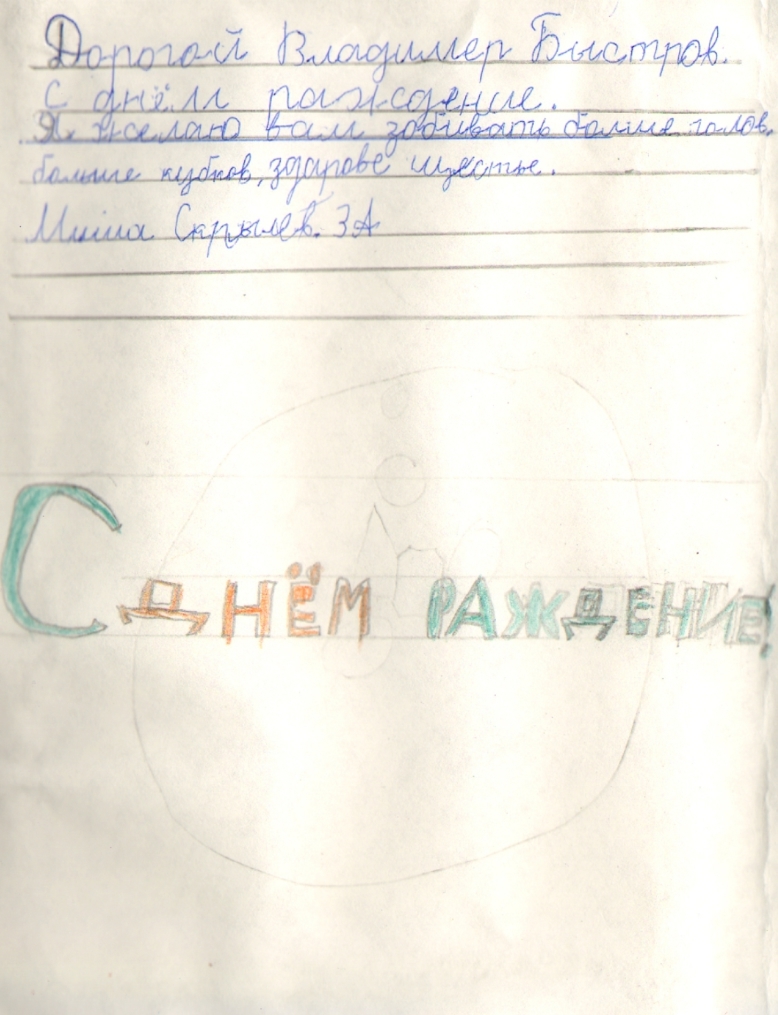 Дорогой Владимер Быстров.
С днём раждение.
Я желаю вам забивать больше голов,
больше кубков, здарове щястье.
Миша Скрылев. 3А
С ДНЁМ РАЖДЕНИЕ!